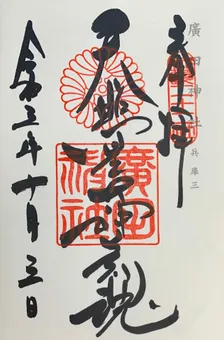 奉拝
廣田神社
天照荒御魂
廣田神社
令和三年十月三日